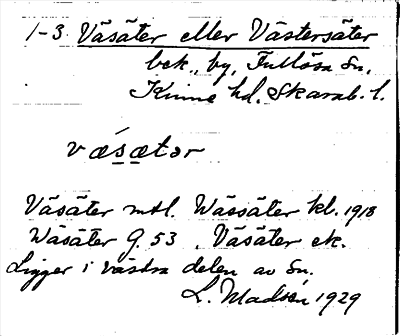 1-3 Väsäter eller Västersäter
bek., by, Fullösa Sn,
Kinne hd. Skarab. l.
vǽsætər
Väsäter mtl. Wässäter kl. 1918
Wäsäter G. 53, Väsäter ek.
Ligger i västra delen av Sn.
L. Madsén 1929